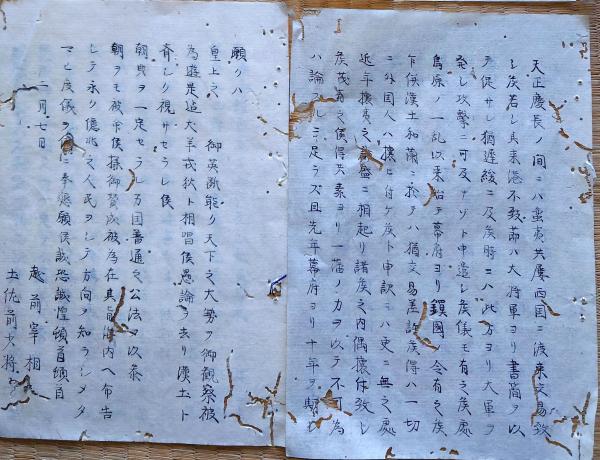 天正慶長ノ間ニハ蛮夷共廣西国ニ渡来交易致
シ候若シ其来港不致節ハ大将軍ヨリ書簡ヲ以
テ促サレ猶遅緩ニ及候時ニハ此方ヨリ大軍ヲ
発シ攻撃ニ可及ナゾト申遣シ候儀モ有之候處
島原ノ一乱以来始テ幕府ヨリ鎖國ノ令有之候
乍併漢土和蘭ニ於テハ猶交易差許候得ハ一切
ニ外国人ハ攘ヒ付ケ候ト申訳ニハ更ニ無之處
近年攘夷之議盛ニ相起リ諸侯之内偶攘休致シ
候茂有之候得共素ヨリ一藩ノ力ヲ以テ不可為
ハ論スルニ足ラズ且先年幕府ヨリ十年ヲ期
願クハ
皇上之 御英断能ク天下之大勢ヲ御観察被
為遊是迄犬羊戎狄ト相唱候愚論ヲ去リ漢土ト
齊シク視サセラレ候
朝典ヲ一定セラレ万国普通之公法ヲ以参
朝ヲモ被命候様御賛成被為在其旨海内ヘ布告
シテ永ク億兆之人民ヲシテ方向ヲ知ラシメタ
マヒ度儀ヲ 奉懇願候誠恐誠惶頓首頓首
二月七日
越前宰相
土佐前少将